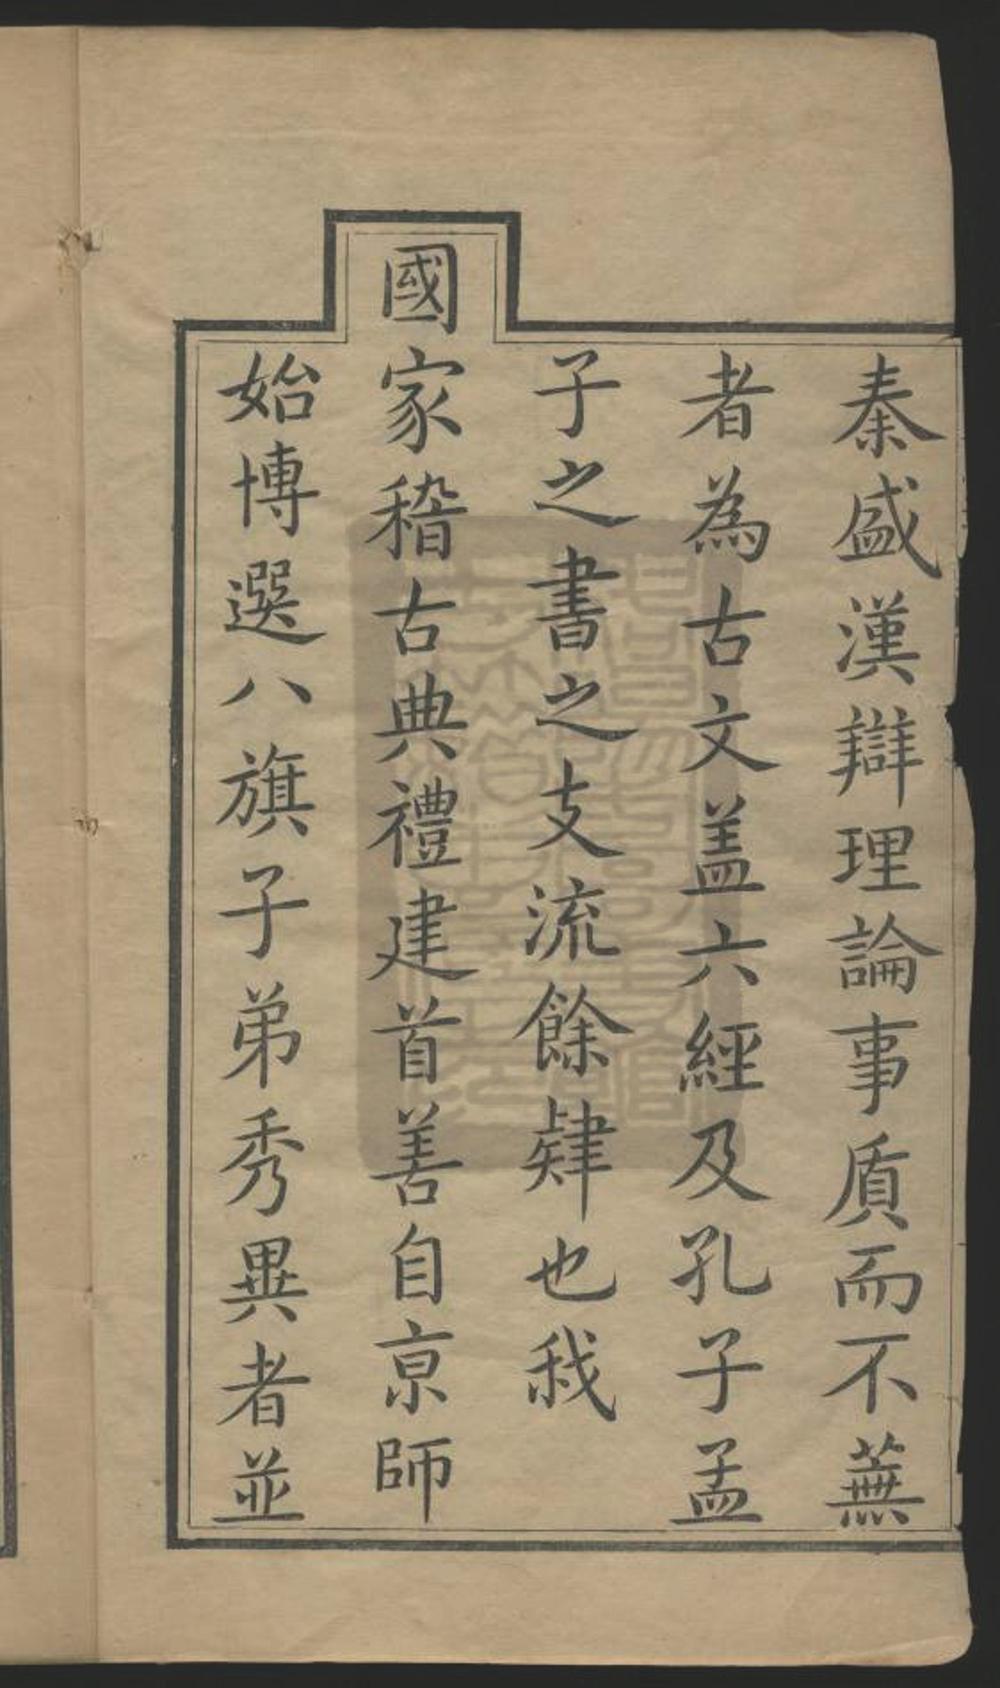 秦盛漢辯理論事質而不蕪
者為古文盖六經及孔子孟
子之書之支流餘肄也我
國家稽古典禮建首善自京師
始博選八旗子弟秀異者並